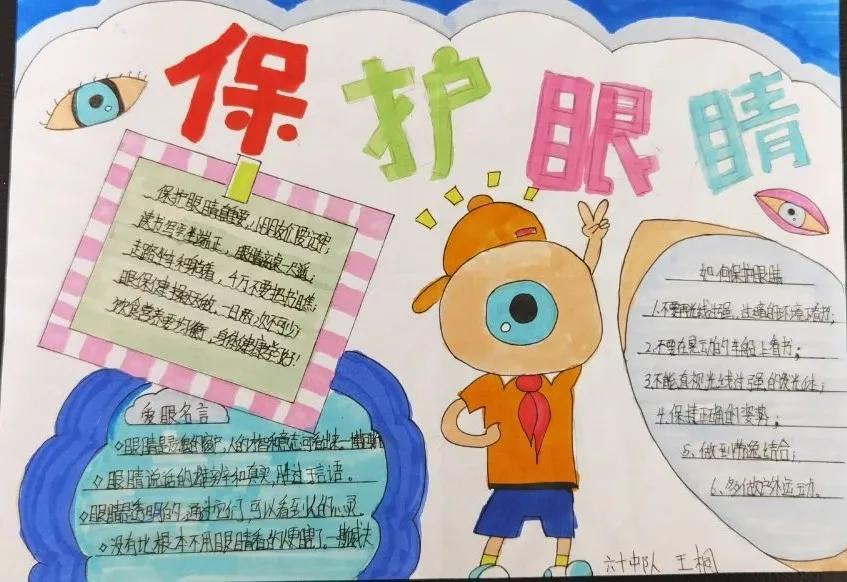 保护眼睛
保护眼睛最重要,小朋友们要记牢;
读书写字坐端正,眼睛离桌一尺远,
走路坐车躺着,千万不要把书瞧;
眼保健操认真做,一日两次不可少;
饮食营养要均衡,身体健康学习好!
爱眼名言
◇眼睛是灵魂的窗户,人的才智和意志可看出来一
◇眼睛说话的雄辩和真实,胜过言语。
◇眼睛是透明的,通过它们,可以看到人的心灵。
◇没有比根本不用眼睛看的人更瞎了。
如何保护眼睛
1.不要再光线过强、过暗的环境下看书;
2.不要在晃动的车船上看书;
3.不能直视光线过强的发光体;
4.保持正确的姿势;
5、做到劳逸结合;
6、多做户外运动。
六十中队 王桐